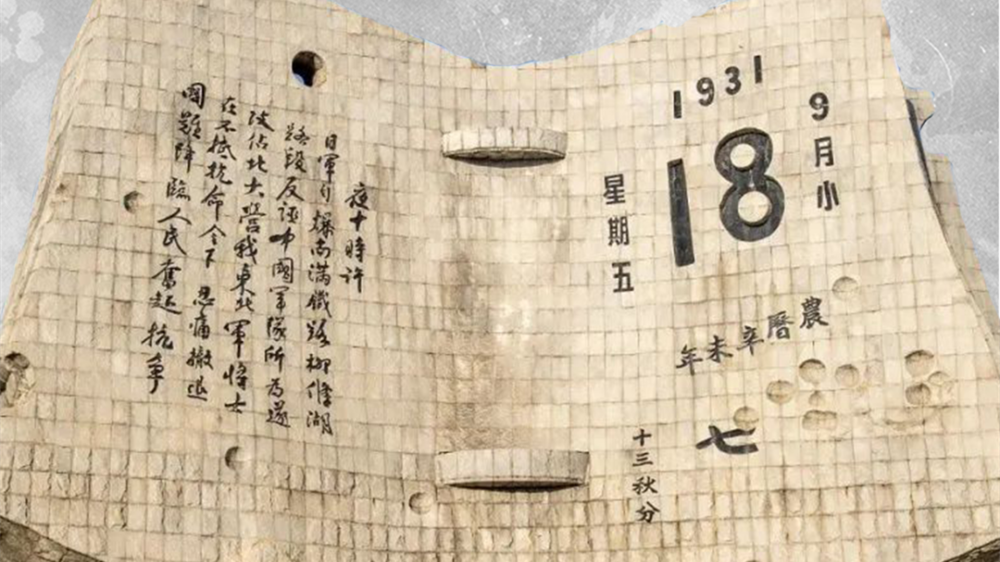 1931
9月小
18
星期五
農曆辛未年
七
十三秋分
夜十時許
日軍引爆南滿鐵路柳條湖
路段反誣中國軍隊所為遂
攻佔北大營我東北軍將士
在不抵抗命令下忍痛撤退
國難降臨人民奮起抗爭